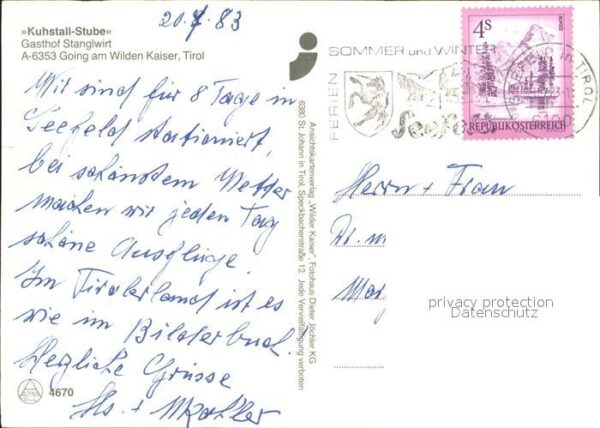 »Kuhstall-Stube«
Gasthof Stanglwirt
A-6353 Going am Wilden Kaiser, Tirol
20.7.83
Wir sind für 8 Tage in
Seefeld stationiert,
bei schönstem Wetter
machen wir jeden Tag
schöne Ausflüge.
Im Tirolerland ist es
wie im Bilderbuch.
Herzliche Grüsse
4670
Ansichtskartenverlag „Wilder Kaiser", Fotohaus Dieter Jöchler KG
6380 St. Johann in Tirol, Speckbacherstraße 12 Jede Vervielfältigung verboten
FERIEN
SOMMER und WINTER
Seefe
4S
REPUBLIK ÖSTERREICH
Herrn + Frau
privacy protection
Datenschutz